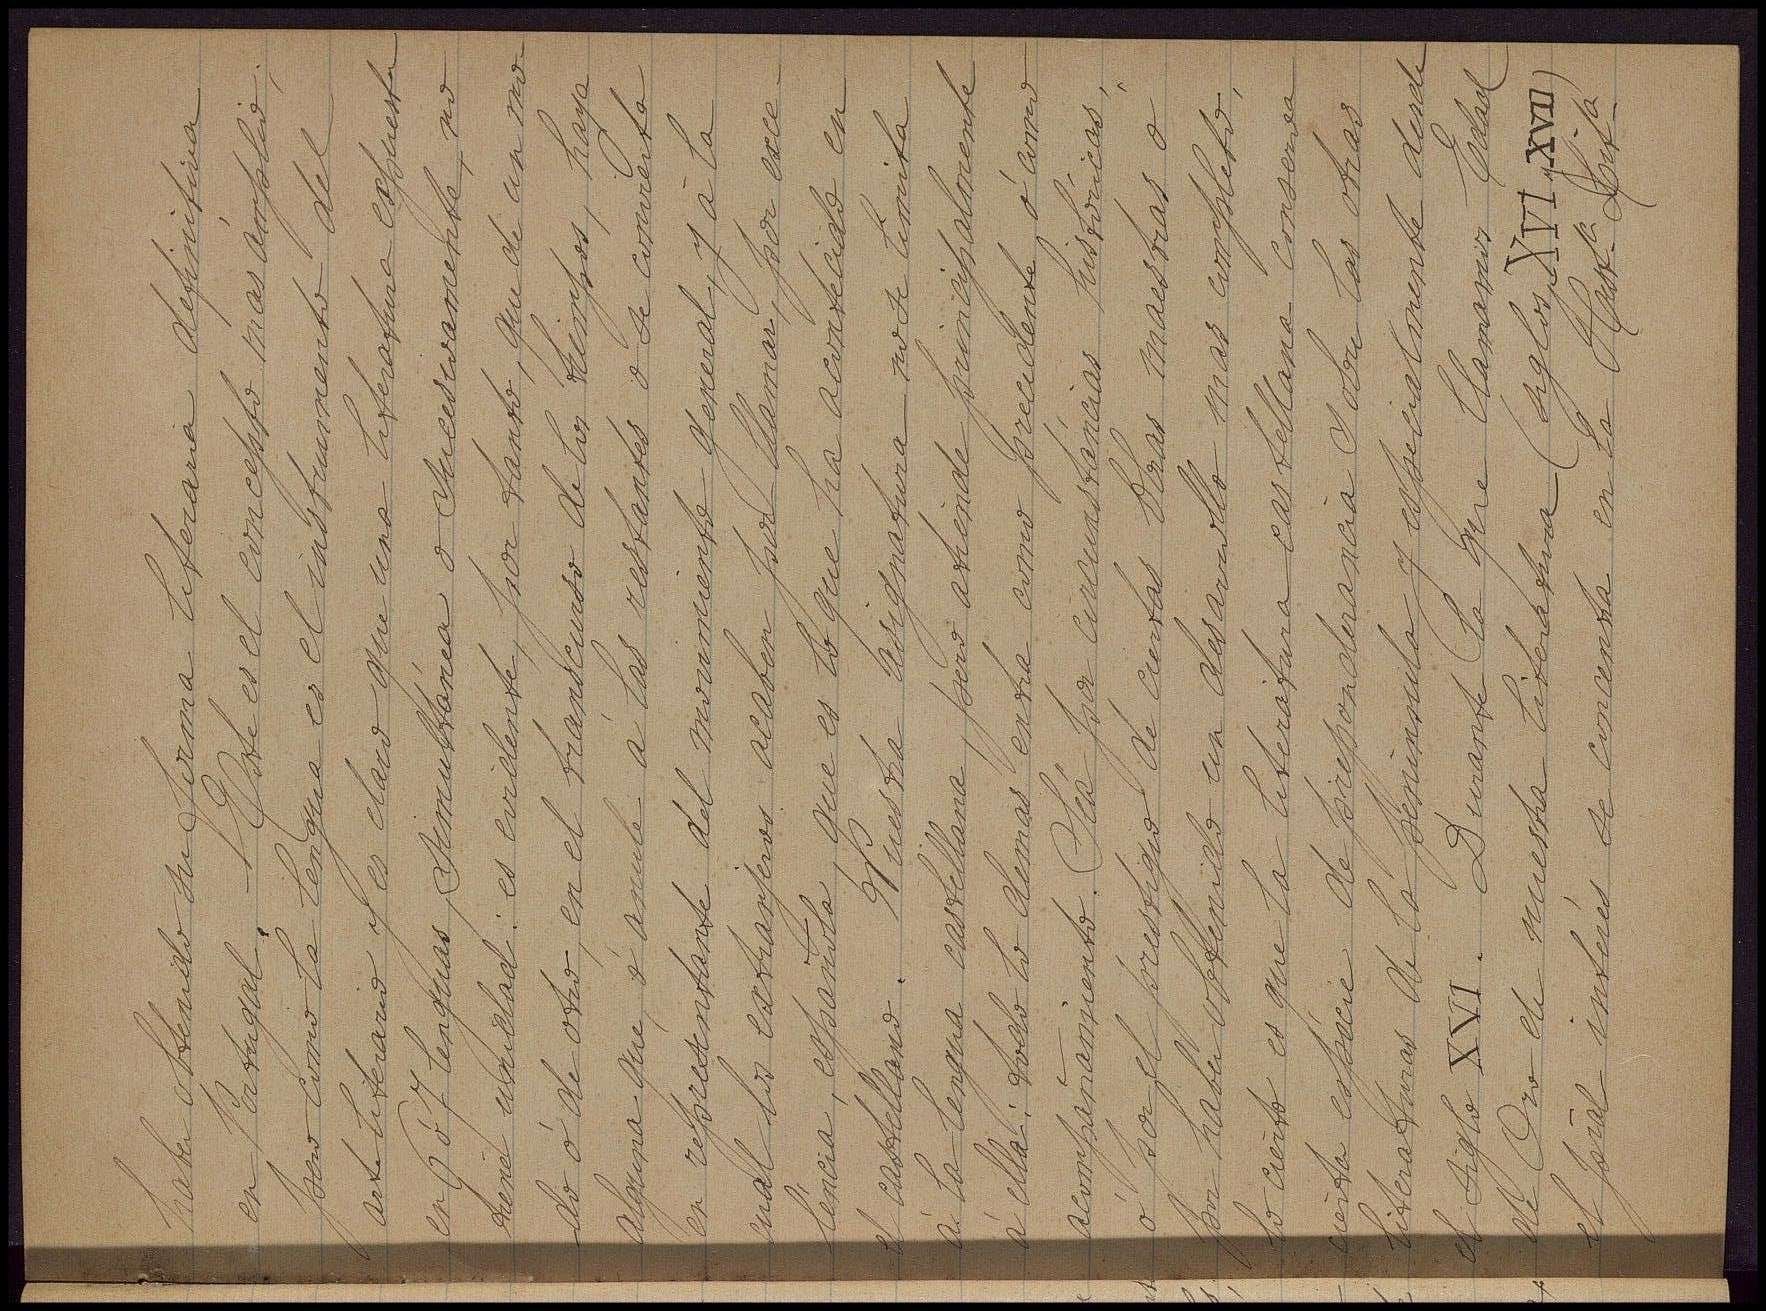 haber obtenido su forma literaria definitiva
en Portugal. Este es el concepto mas ámplio;
pero como la lengua es el instrumento del
arte literario y es claro que una literatura espuesta
en 6 ó 7 lenguas, simultánea o sucesivamente, no
tiene unidad: es evidente, por tanto, que de un mo
do ó de otro, en el transcurso de los tiempos, haya
alguna que, ó anule á las restantes ó se convierta
en representante del movimiento general, y á la
cual los extranjeros acaben por llamar, por exce
lencia, española, que es lo que ha acontecido en
el castellano. Nuestra asignatura no se limita
á la lengua castellana pero atiende principalmente
á ella: todo lo demas entra como precedente ó como
acompañamiento. Sea por circunstáncias históricas,
ó por el prestigio de ciertas obras maestras o
por haber obtenido un desarrollo mas completo,
lo cierto es que la literatura castellana conserva
cierta espécie de preponderancia sobre las otras
literaturas de la península y especialmente desde
el siglo XVI. Durante la que llamamos Edad
de Oro de nuestra literatura (siglos XVI y XVII)
el pral interés se concentra en la Cast.ª Lit.ª